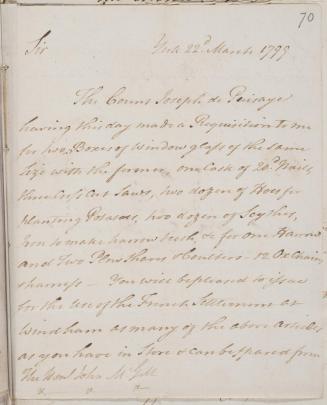 70
Sir York 22d March 1799
The Count Joseph de Puisaye
having this day made a Requisition to me
for two Boxes of Window glass of the same
Size with the former, one Cask of 20d Nails,
three Cross Cut Saws, two dozen of Hoes for
planting Potatoes, two dozen of Scythes,
Iron to make harrow teeth, & for one Harrow
and Two Plow Shares & Coulters - 12 Ox Chains
& harness - You will be pleased to issue
for the use of the French Settlement at
Windham as many of the above articles
as you have in Store & can be spared from
The Honl John McGill